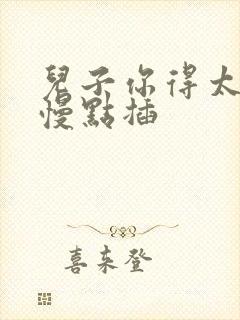 兒子你得太
慢點插
喜来登